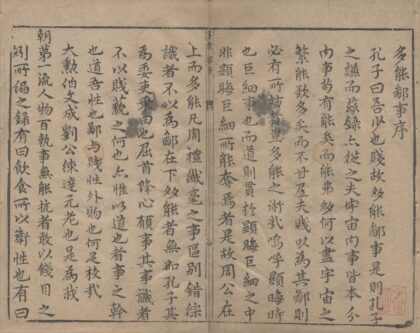 多能鄙事序
孔子曰吾少也賤故多能鄙事是則孔子
之謙而發錄亦從之夫宇宙內事皆本分
內事苟有能矣而能弗多何以盡宇宙之
繁能欲多矣而不甘屈夫賤以為其鄙則
必有所妨豈多能之術哉嗚呼顯晦時
也巨細事也而道則貫於顯晦巨細之中
非顯晦巨細所能奪焉者是故周公在
上而多能凡周禮纖毫之事區別錯綜
識者不以為鄙在下多能者無如孔子其
為委吏乘田也屈首降心順事其事識者
不以賤藐之何也亦惟以道也者事之幹
也道吾性也鄙與賤性外物也何足校哉
大勲伯文成劉公陳達元老也是為我
朝第一流人物百執事無能抗者敢以目之
別所編之錄有曰飲食所以衛性也有曰